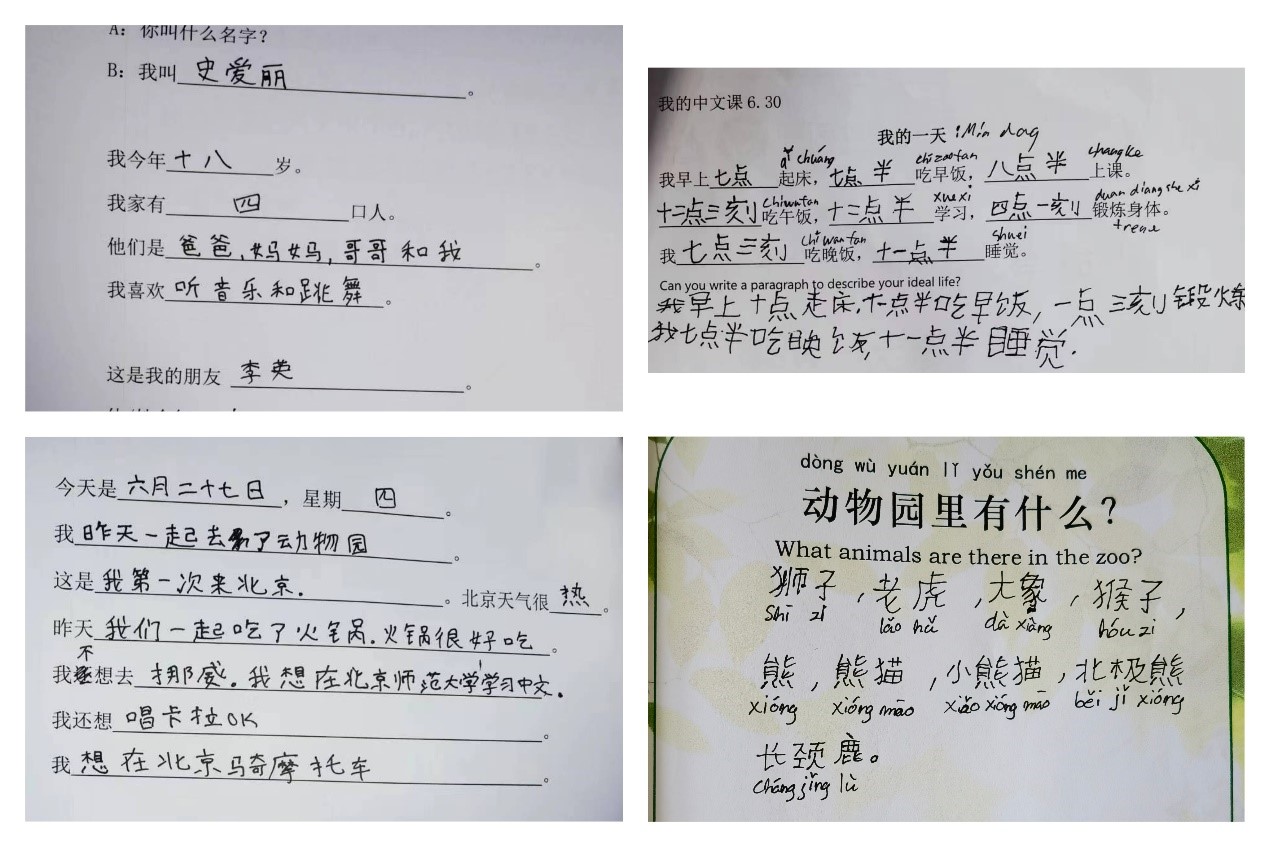 A：你叫什么名字？
B：我叫 史爱丽 。
我今年 十八 岁。
我家有 四 口人。
他们是 爸爸，妈妈，哥哥和我 。
我喜欢 听音乐和跳舞 。
这是我的朋友 李英 。
我的中文课 6.30
我的一天 : Min dag
qǐ chuáng chī zaofan shangke
我早上 七点 起床，七点半 吃早饭，八点半 上课。
chiwufan xuexi duan diang she xi
十二点三刻 吃午饭，十三点半 学习，四点一刻 锻炼身体。
chi wan fan shuei trene
我 七点三刻 吃晚饭，十一点半 睡觉。
Can you write a paragraph to describe your ideal life?
我早上十点走床，十点半吃早饭，一点三刻锻炼
我七点半吃晚饭，十一点半睡觉．
今天是 六月二十七日 ，星期 四 。
我 昨天一起去了动物园 。
这是 我第一次来北京． 。北京天气很 热 。
昨天 我们一起吃了火锅．火锅很好吃 。
我不想去 挪威。我想在北京师范大学学习中文。
我还想 唱卡拉OK 。
我 想在北京马奇摩托车 。
dòng wù yuán lǐ yǒu shén me
动物园里有什么？
What animals are there in the zoo?
狮子，老虎，大象，猴子，
Shī zi lǎo hǔ dà xiàng hóu zi
熊，熊猫，小熊猫，北极熊
xióng xióng māo xiǎo xióng māo běi jí xióng
长颈鹿。
cháng jǐng lù